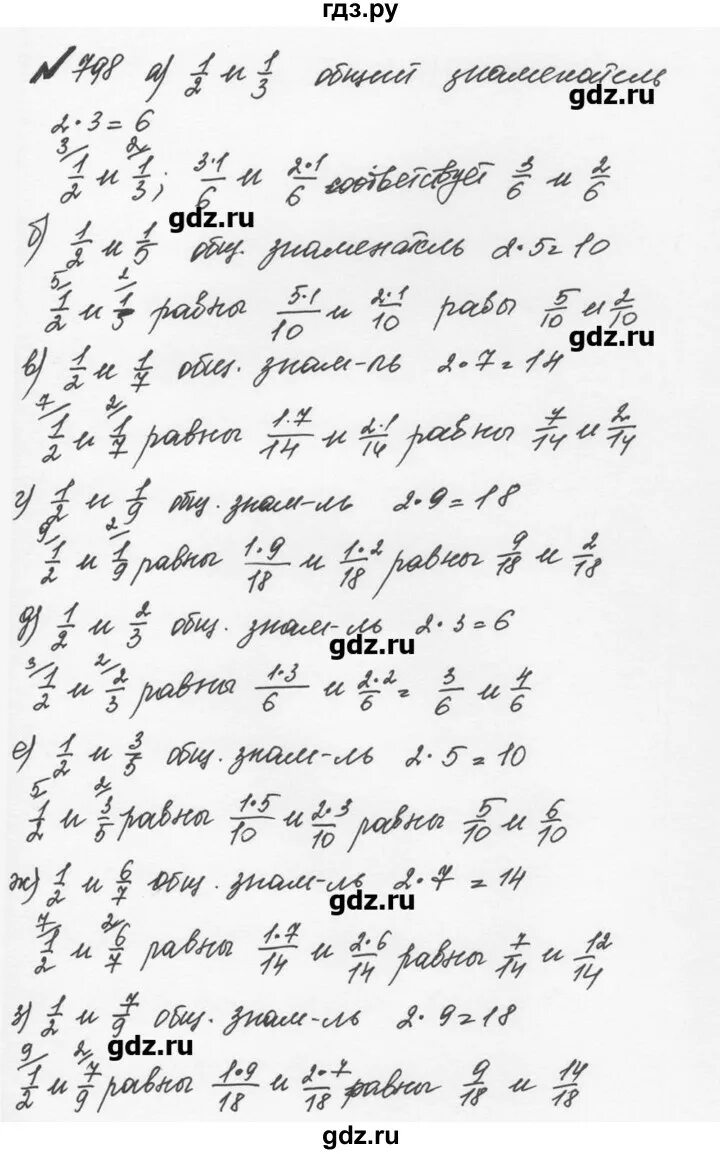 гдз.ру
№ 798 а) 1/2 и 1/3 общий знаменатель
gdz.ru
2·3=6
3/ 1/2 и 2/ 1/3; 3·1/6 и 2·1/6 соответствует 3/6 и 2/6
gdz.ru
б) 1/2 и 1/5 общ. знаменатель 2·5=10
5/ 1/2 и 2/ 1/5 равны 5·1/10 и 2·1/10 равы 5/10 и 2/10
gdz.ru
в) 1/2 и 1/7 общ. знам-ль 2·7=14
7/ 1/2 и 2/ 1/7 равны 1·7/14 и 2·1/14 равны 7/14 и 2/14
г) 1/2 и 1/9 общ. знам-ль 2·9=18
9/ 1/2 и 2/ 1/9 равны 1·9/18 и 1·2/18 равны 9/18 и 2/18
д) 1/2 и 2/3 общ. знам-ль 2·3=6
gdz.ru
3/ 1/2 и 2/ 2/3 равны 1·3/6 и 2·2/6 = 3/6 и 4/6
е) 1/2 и 3/5 общ. знам-ль 2·5=10
5 1/2 и 2/ 3/5 равны 1·5/10 и 2·3/10 равны 5/10 и 6/10
ж) 1/2 и 6/7 общ. знам-ль 2·7=14
gdz.ru
7/ 1/2 и 2/ 6/7 равны 1·7/14 и 2·6/14 равны 7/14 и 12/14
з) 1/2 и 7/9 общ. знам-ль 2·9=18
gdz.ru
9/ 1/2 и 2/ 7/9 равны 1·9/18 и 2·7/18 равны 9/18 и 14/18
gdz.ru